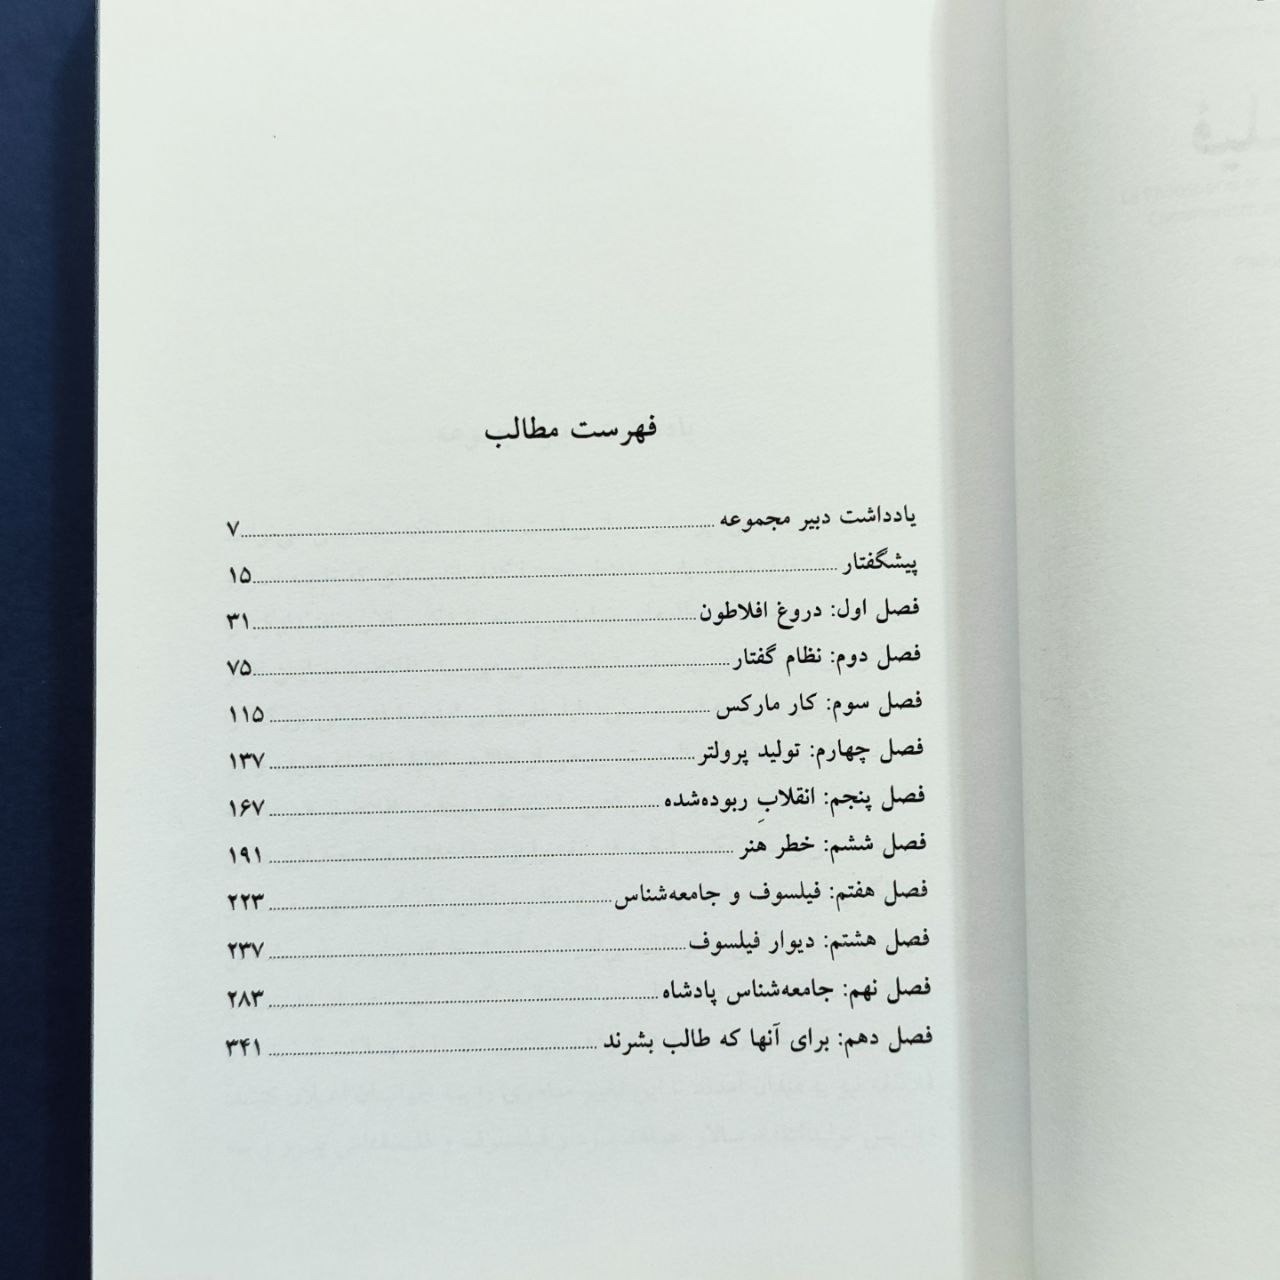 فهرست مطالب
یادداشت دبیر مجموعه ۷
پیشگفتار ۱۵
فصل اول: دروغ افلاطون ۳۱
فصل دوم: نظام گفتار ۷۵
فصل سوم: کار مارکس ۱۱۵
فصل چهارم: تولید پرولتر ۱۳۷
فصل پنجم: انقلابِ ربوده‌شده ۱۶۷
فصل ششم: خطر هنر ۱۹۱
فصل هفتم: فیلسوف و جامعه‌شناس ۲۲۳
فصل هشتم: دیوار فیلسوف ۲۳۷
فصل نهم: جامعه‌شناس پادشاه ۲۸۳
فصل دهم: برای آنها که طالب بشرند ۳۴۱